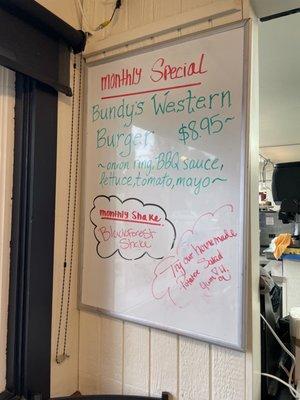 monthly Special
Bundy's Western
Burger $895~
~onion ring, BBQ sauce,
lettuce, tomato, mayo~
monthly Shake
Blackforest
Shake
Try our homemade
Potatoe Salad
Yum